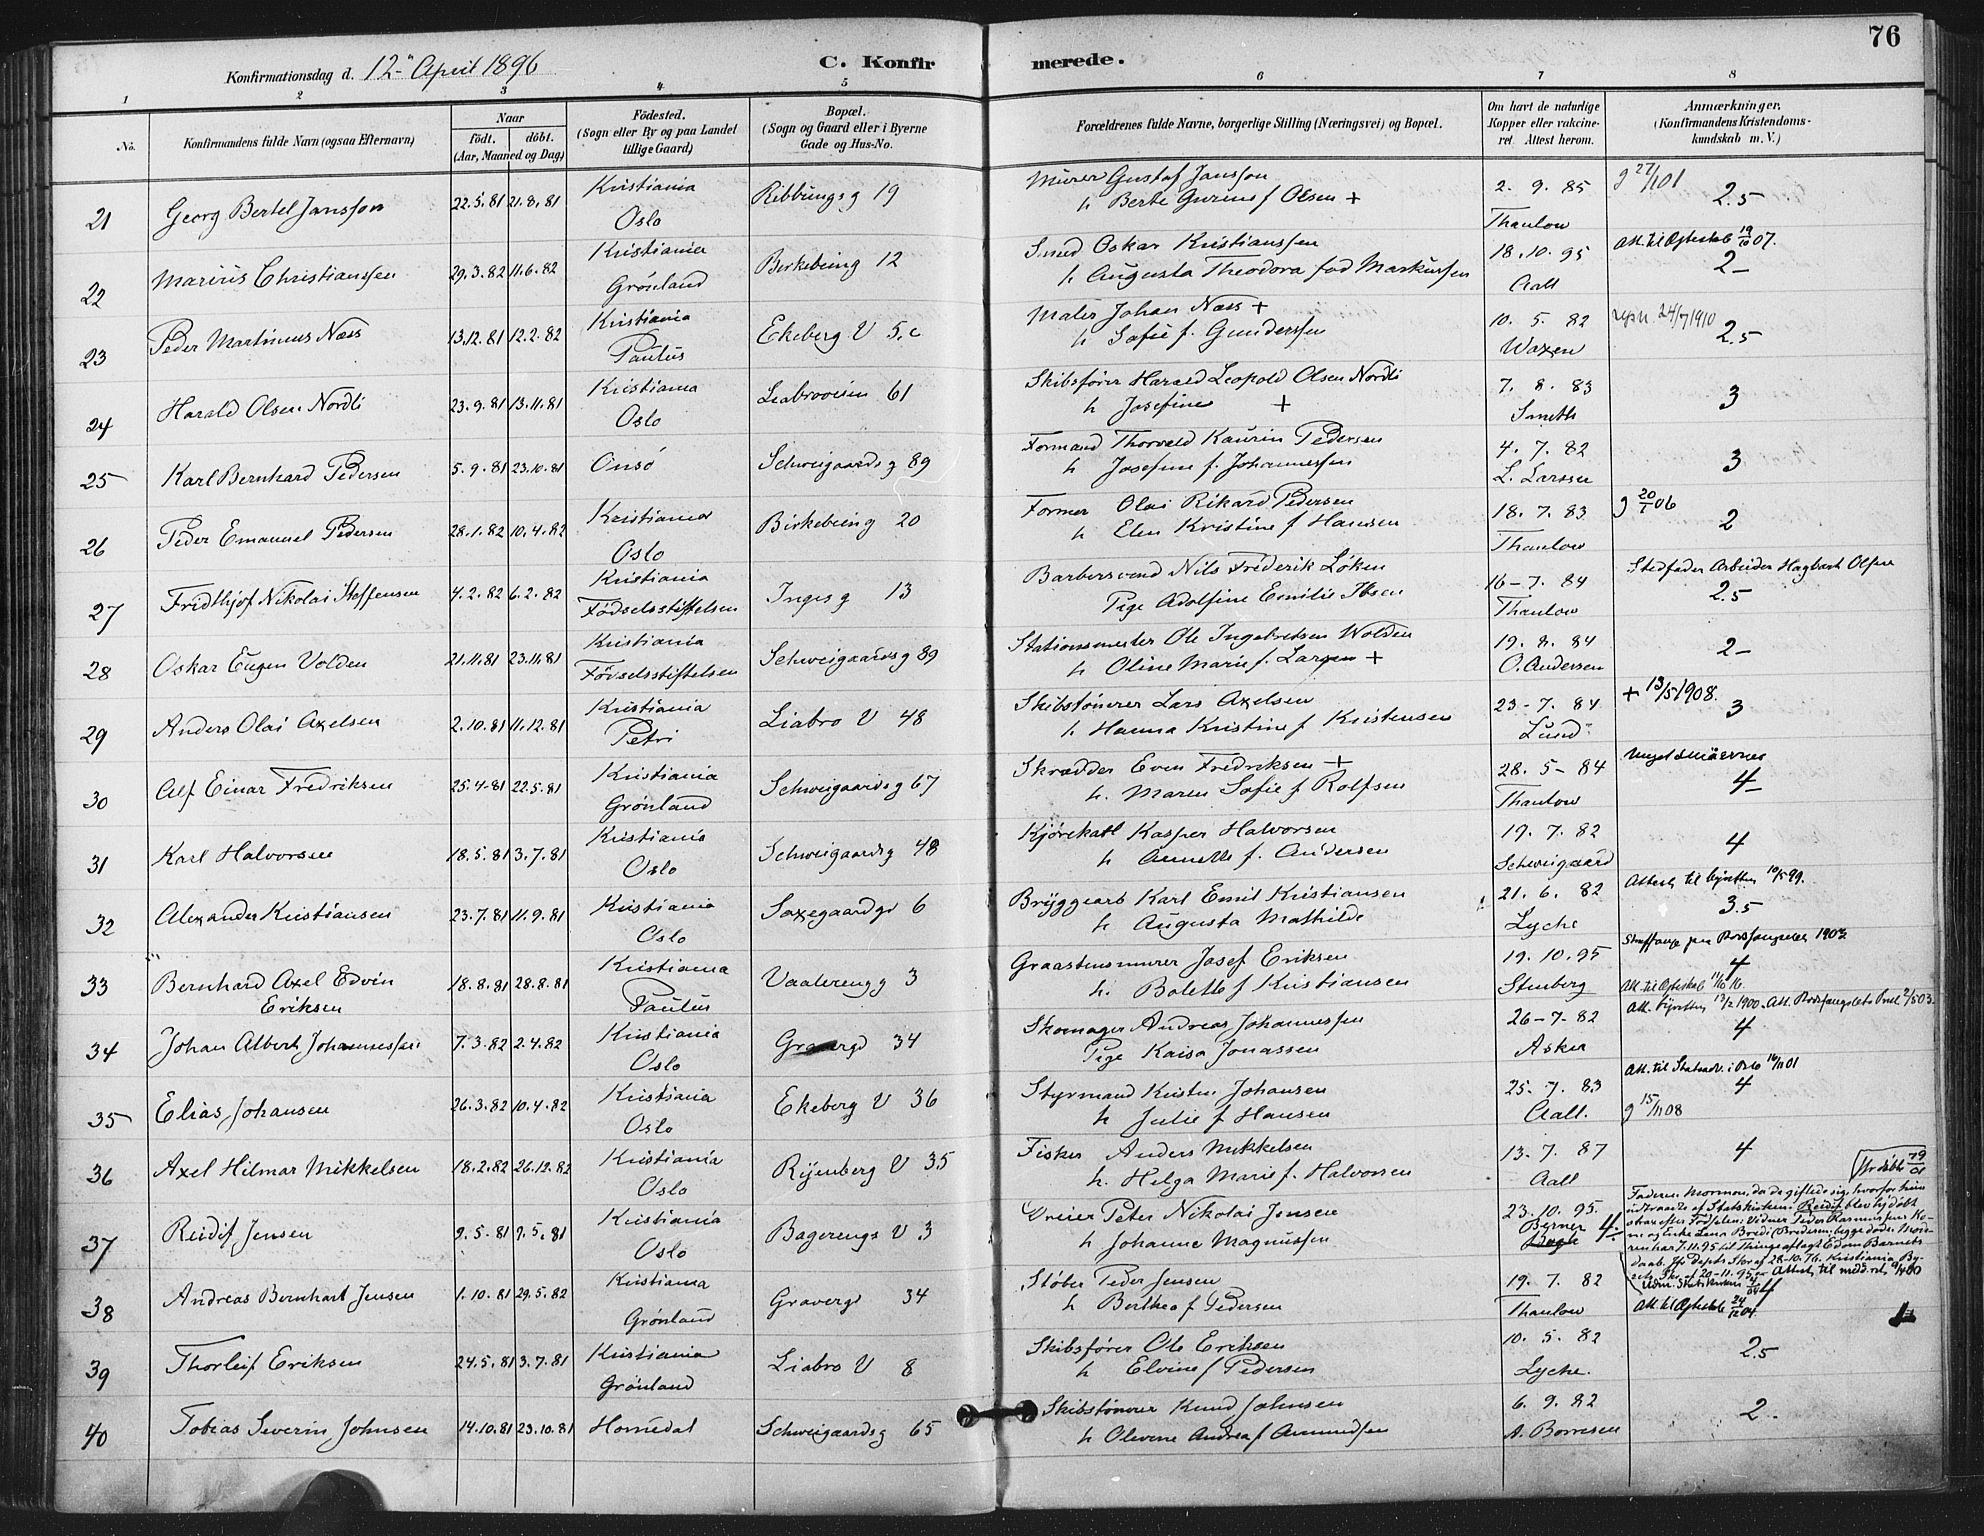 76
Konfirmationsdag d. 12- April 1896 C. Konfirmerede.
1 2 3 4 5 6 7 8
No. Konfirmandens fulde Navn (ogsaa Efternavn)
Naar født. døbt. (Aar, Maaned og Dag)
Födested. (Sogn eller By og paa Landet tillige Gaard)
Bopæl. (Sogn og Gaard eller i Byerne Gade og Hus-No.
Forældrenes fulde Navne, borgerlige Stilling (Næringsvei) og Bopæl.
Om havt de naturlige Kopper eller vaccineret. Attest herom.
Anmærkninger. (Konfirmandens Kristendomskundskab m. V.)
21 Georg Bertel Jansson 22.5.81 21.8.81 Kristiania Oslo Ribbungs g 19
Murer Gustaf Jansson
h Berte Gurine f Olsen +
2. 9. 85 Thaulow
g 27/1 01 2.5
22 Marius Christianssen 29.3.82 11.6.82 Kristiania Grønland Birkebeing 12
Smed Oskar Kristianssen
h Augusta Theodora fød Markussen
18.10.95 Aall
Att. til Ægteskab 19/10 07. 2-
23 Peder Martinius Næss 13.12.81 12.2.82 Kristiania Paulus Ekeberg V 5.c
Maler Johan Næss +
h Sofie f. Gunderssen
10. 5. 82 Waxen
24/7 1910 2.5
24 Harald Olsen Nordli 23.9.81 13.11.81 Kristiania Oslo Liabroveien 61
Skibsfører Harald Leopold Olsen Nordli
h Josefine +
7. 8. 83 Smith
3
25 Karl Bernhard Pedersen 5.9.81 23.10.81 Onsö Schweigaards g 89
Formand Thorvald Kaurin Pedersen
h Josefine f. Johannessen
4. 7. 82 L. Larssen
3
26 Peder Emanuel Pedersen 28.1.82 10.4.82 Kristiania Oslo Birkebeing 20
Former Olai Rikard Pedersen
h Elen Kristine f Hansen
18. 7. 83 Thaulow
g 20/1 06 2
27 Fridthjof Nikolai Steffensen 4.2.82 6.2.82 Kristiania Födselsstiftelsen Inges g 13
Barbersvend Nils Frederik Løken
Pige Adolfine Emilie Ibsen
16-7. 84 Thaulow
Stedfader Arbeider Hagbart Olsen 2.5
28 Oskar Eugen Volden 21.11.81 23.11.81 Kristiania Födselsstiftelsen Schweigaards g 89
Stationsmester Ole Ingebretsen Wolden
h Oline Marie f. Larsen +
19. 8. 84 O. Andersen
2-
29 Anders Olai Axelsen 2.10.81 11.12.81 Kristiania Petri Liabro V 48
Skibstømrer Lars Axelsen
h. Hanna Kristine f Kristensen
23-7. 84 Lund
+ 13/5 1908. 3
30 Alf Einar Fredriksen 25.4.81 22.5.81 Kristiania Grønland Schweigaards g 67
Skrædder Even Fredriksen +
h. Maren Sofie f Rolfsen
28. 5-84 Thaulow
4-
31 Karl Halvorsen 18.5.81 3.7.81 Kristiania Oslo Schweigaards g 48
Kjørekarl Kasper Halvorsen
h Annette f. Andersen
19. 7. 82 Schweigaard
4
32 Alexander Kristiansen 23.7.81 11.9.81 Kristiania Oslo Saxegaardgd 6
Bryggearb Karl Emil Kristiansen
h Augusta Mathilde
21. 6. 82 Lyche
3.5
33 Bernhard Axel Edvin Eriksen 18.8.81 28.8.81 Kristiania Paulus Vaalereng g 3
Graastensmurer Josef Eriksen
h. Bolette f Kristiansen
19. 10. 95 Stenberg
Straffange paa Bodsfængselet 1902 4
Att. til Ægteskab 11/6 16.
34 Johan Albert Johannessen 7.3.82 2.4.82 Kristiania Oslo Gravergd 34
Skomager Andreas Johannessen
Pige Kaisa Jonassen
26-7. 82 Asker
4
35 Elias Johansen 26.3.82 10.4.82 Kristiania Oslo Ekeberg V 36
Styrmand Kristen Johansen
h Julie f Hansen
25-7. 83 Aall.
4
g 15/11 08
36 Axel Hilmar Mikkelsen 18.2.82 26.12.82 Kristiania Oslo Ryenberg V 35
Fisker Anders Mikkelsen
h. Helga Marie f. Halvorsen
13-7. 87 Aall
4
37 Reidif Jensen 9.5.81 9.5.81 Kristiania Oslo Bagerengs V 3
Dreier Peter Nikolai Jensen
h Johanne Magnussen
23. 10. 95. Byrner
4-
Faderen Mormon, da de giftede sig, hvorfor hun udtraadte af Statskirken. Reidif blev hjdöbt strax efter Fødselen:
38 Andreas Bernhart Jensen 1.10.81 29.5.82 Kristiania Grønland Gravergd 34
Støber Peder Jensen
h Berthea f Pedersen
19. 7. 82 Thaulow
Att til Ægteskab 24/12 04
39 Thorleif Eriksen 24.5.81 3.7.81 Kristiania Grønland Liabro V 8
Skibsfører Ole Eriksen
h Elvine f Pedersen
10. 5. 82 Lyche.
2.5
40 Tobias Severin Johnsen 14.10.81 23.10.81 Homedal Schweigaards g 65
Skibstømrer Knud Johnsen
h Olevine Andrea f Amundsen
6. 9. 82 A. Borresen
2.